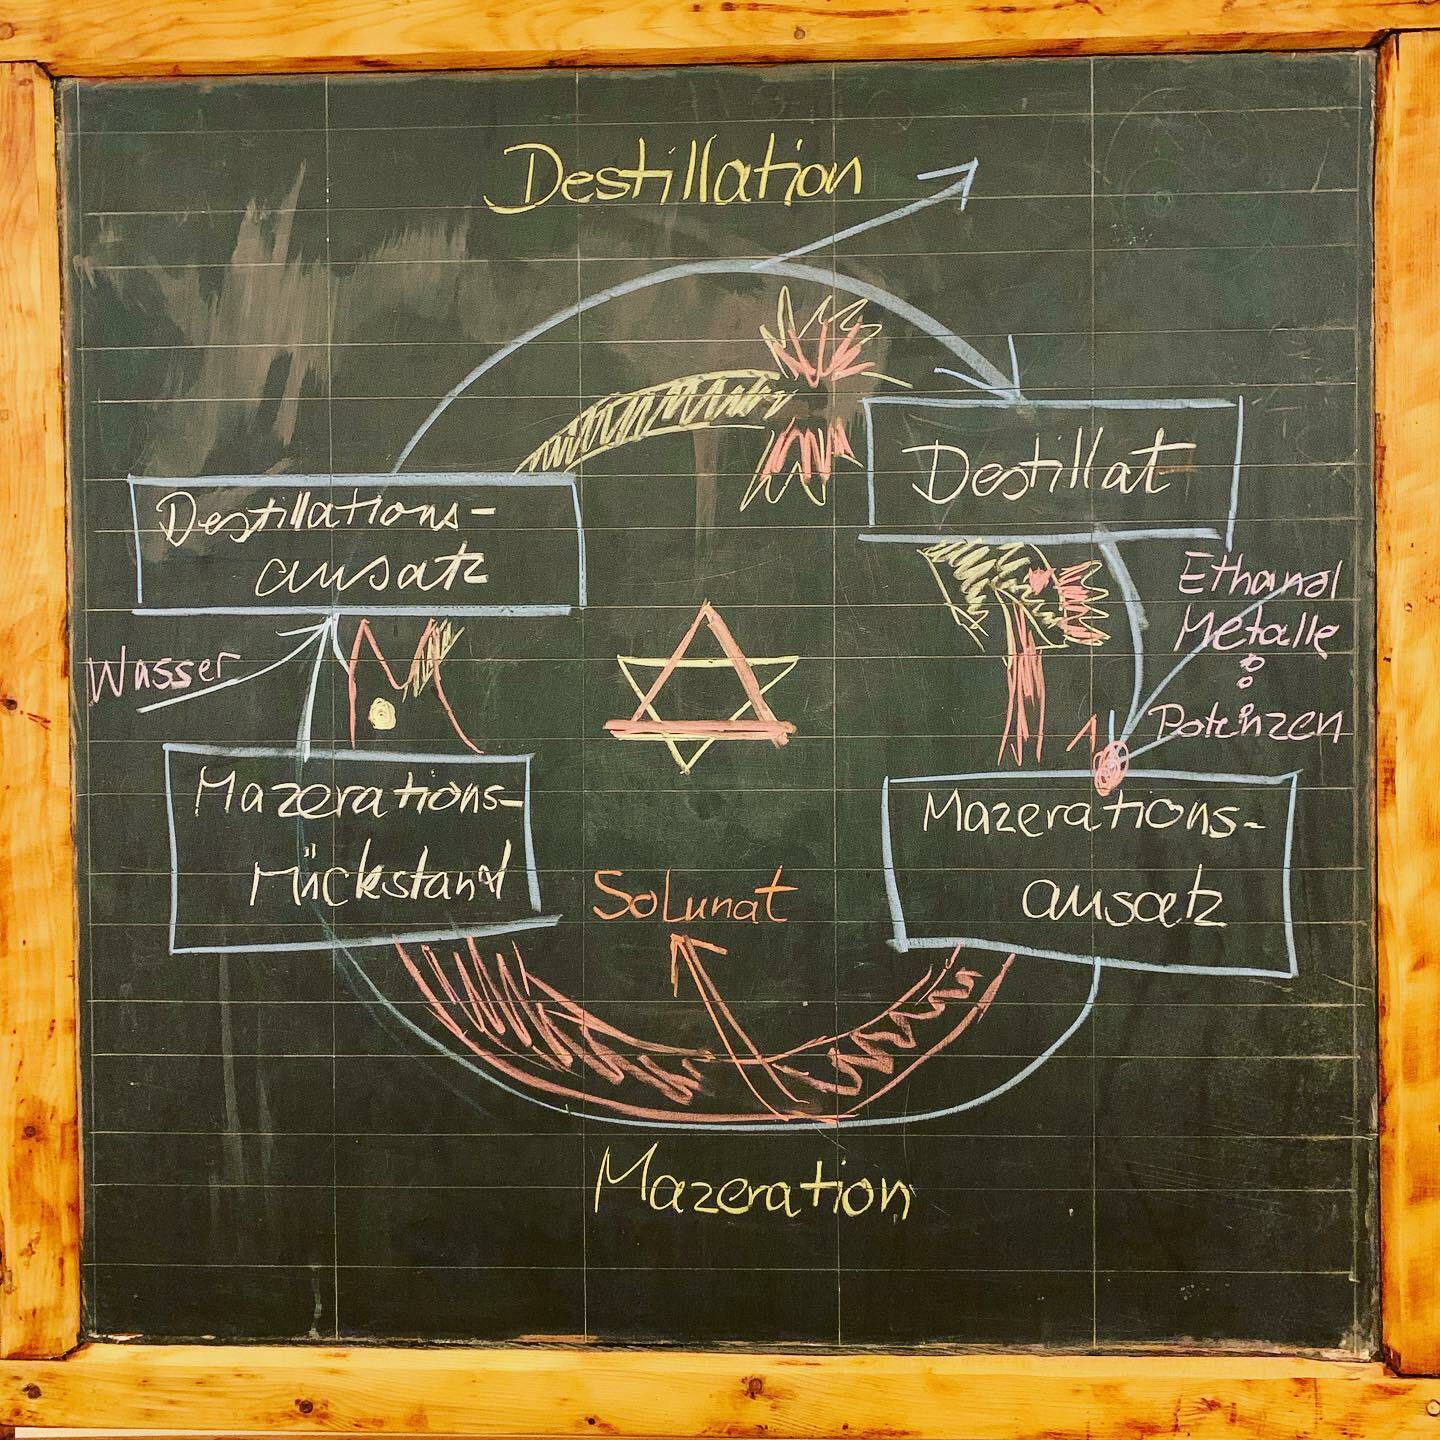 Destillation
Destillat
Destillations-
ansatz
Ethanol
Metalle
Wasser
Potenzen
1
Mazerations-
rückstand
Mazerations-
ansatz
Solunat
Mazeration